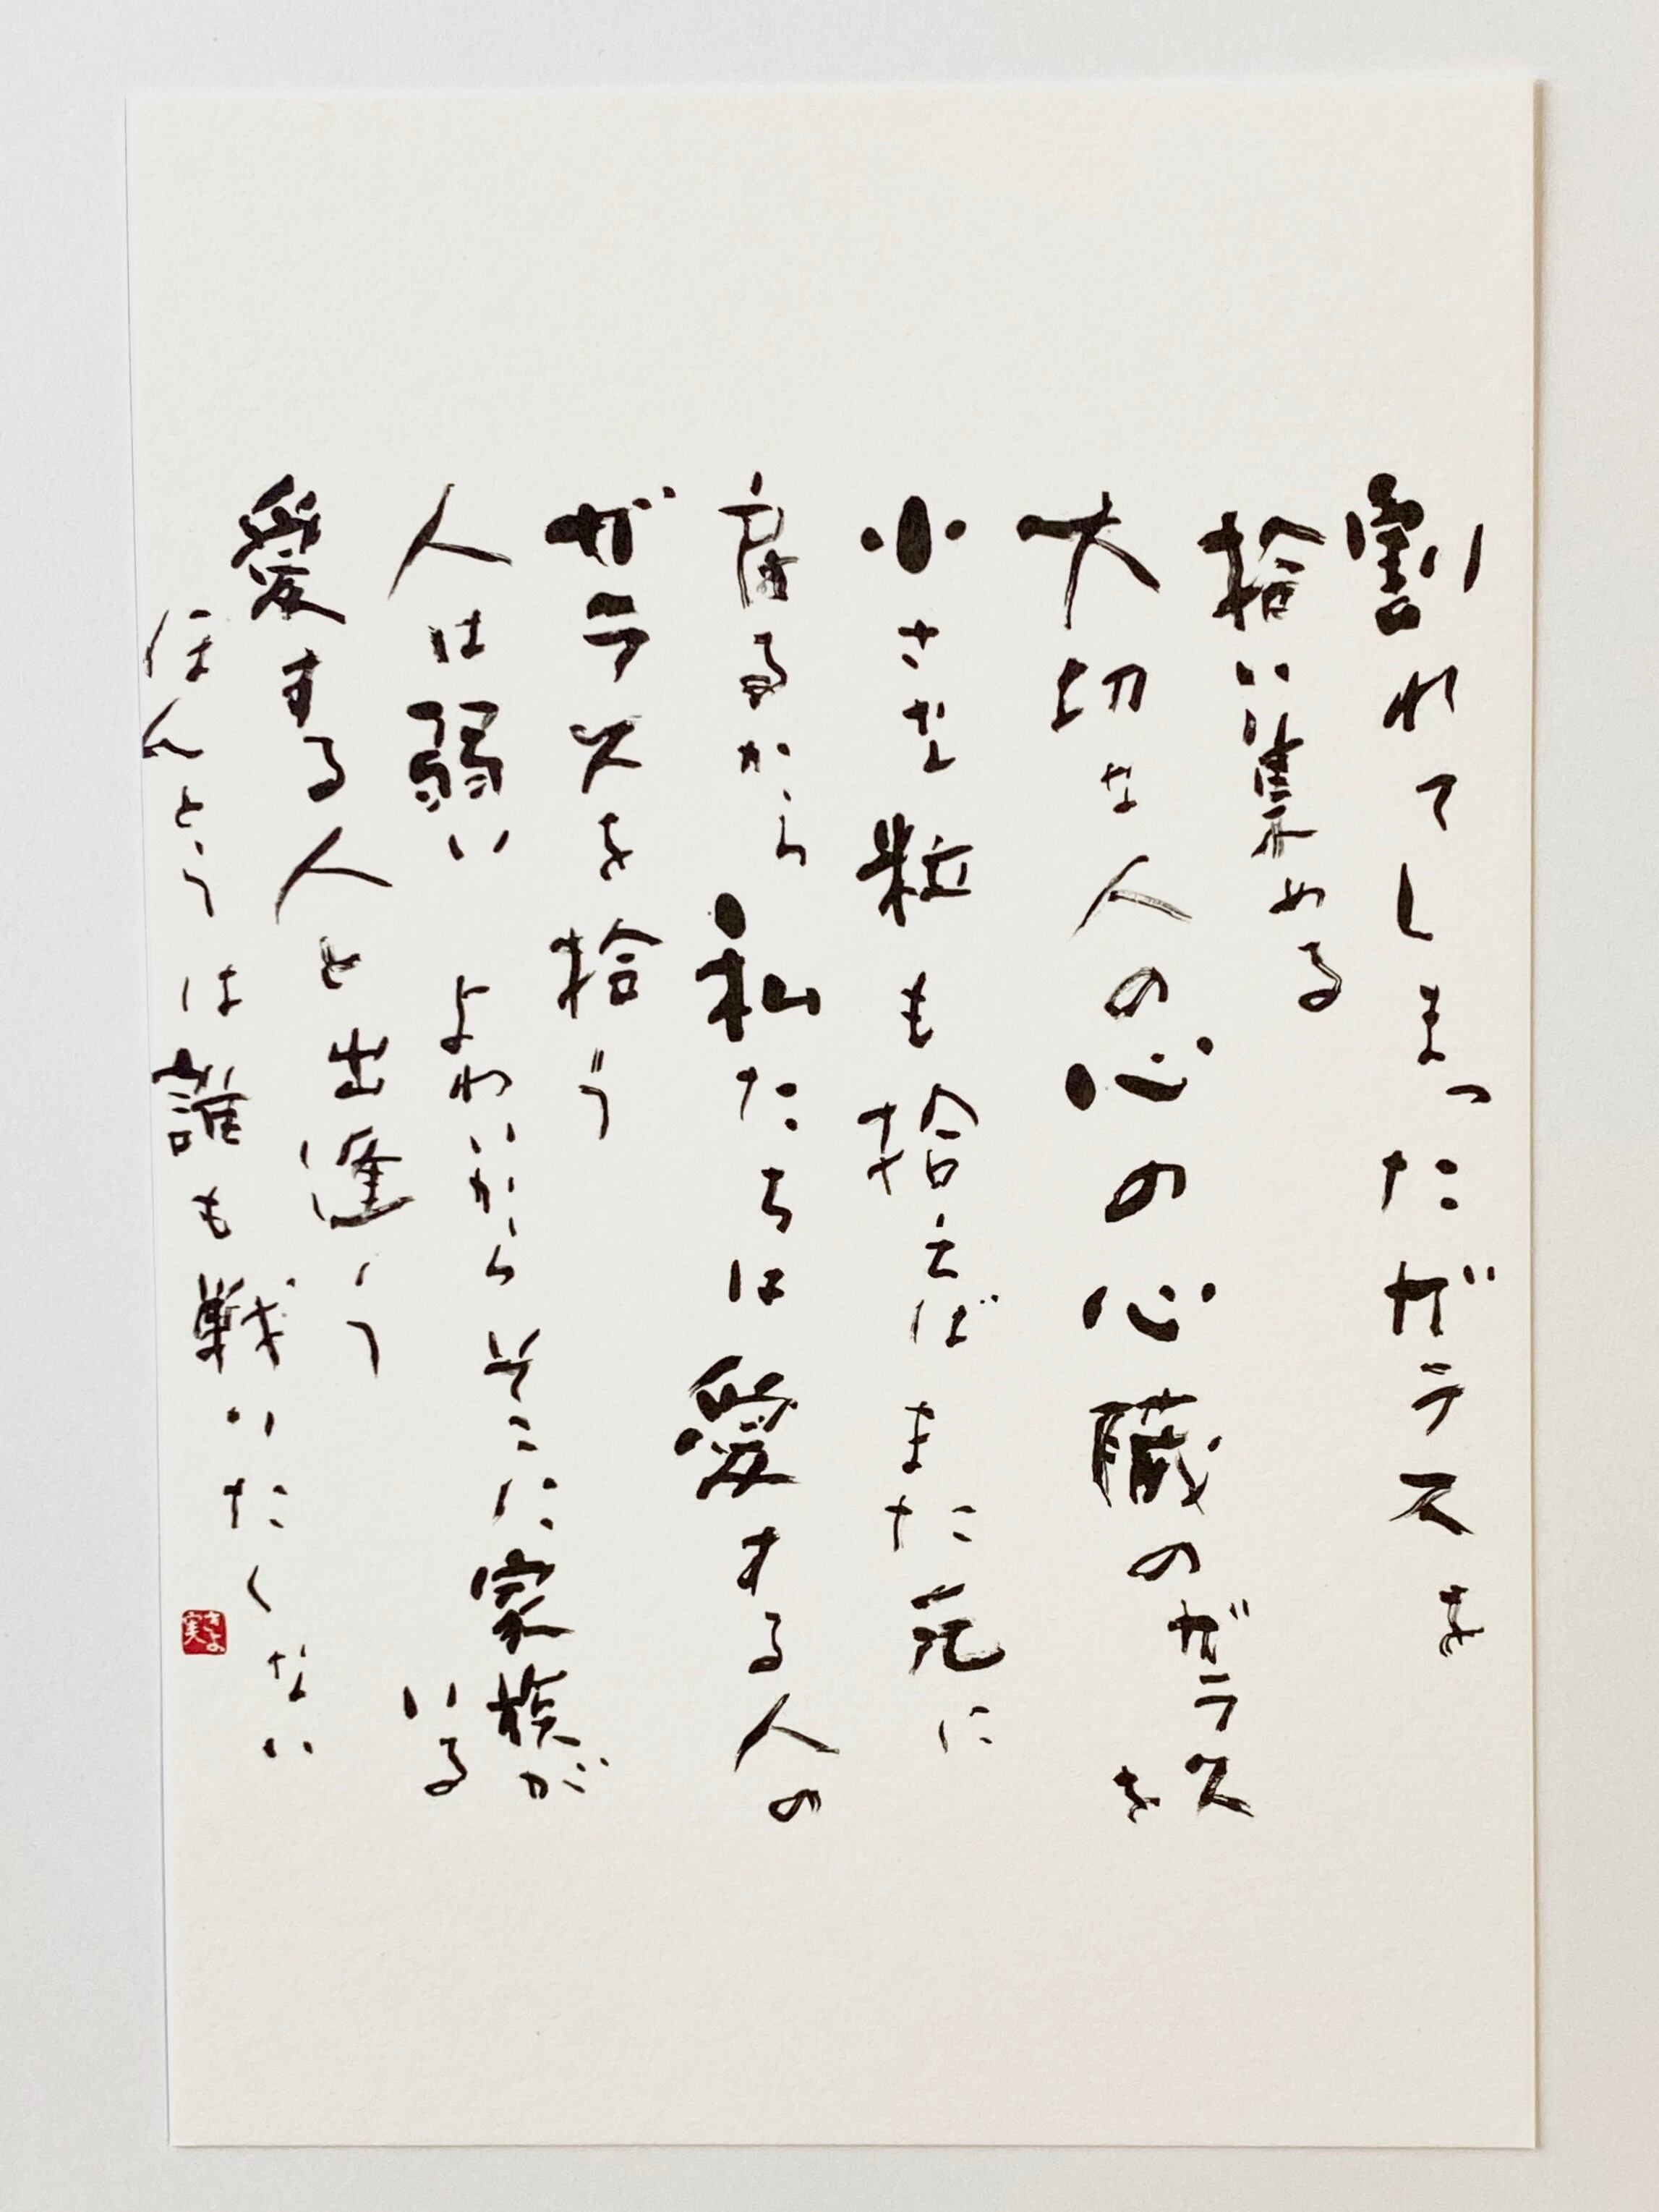 割れてしまったガラスを
拾い集める
大切な人の心の心臓のガラス
を
小さな粒も拾えばまた元に
戻るから私たちは愛する人の
ガラスを拾う
人は弱いよわいからそこに家族が
いる
愛する人と出逢う
ほんとうは誰も戦いたくない
きよ実